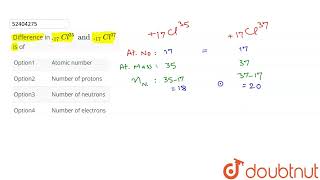 52404275
Difference in ₁₇Cl³⁵ and ₊₁₇Cl³⁷
is of
Option1 Atomic number
Option2 Number of protons
Option3 Number of neutrons
Option4 Number of electrons
+17Cl³⁵ +17Cl³⁷
At. No : 17 = 17
At. Mass : 35 37
nN. : 35-17 37-17
=18 = 20
doubtnut